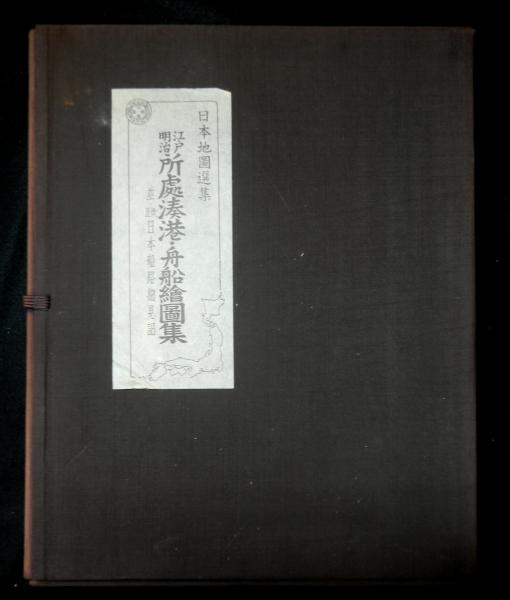 日本地圖選集
江戸
明治
所處湊港・舟船繪圖集
日本船路細見記